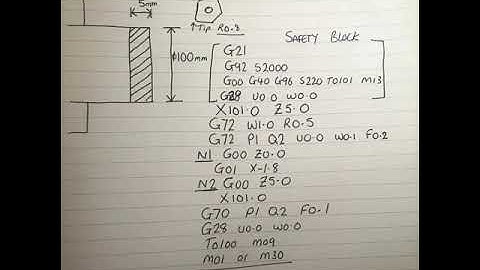 5mm
↑Tip R0.3
Φ100mm
SAFETY BLOCK
G21
G92 S2000
G00 G40 G96 S220 T0101 M13
G28 U0.0 W0.0
X101.0 Z5.0
G72 W1.0 R0.5
G72 P1 Q2 U0.0 W0.1 F0.2
N1 G00 Z0.0
G01 X-1.8
N2 G00 Z5.0
X101.0
G70 P1 Q2 F0.1
G28 U0.0 W0.0
T0100 M09
M01 or M30